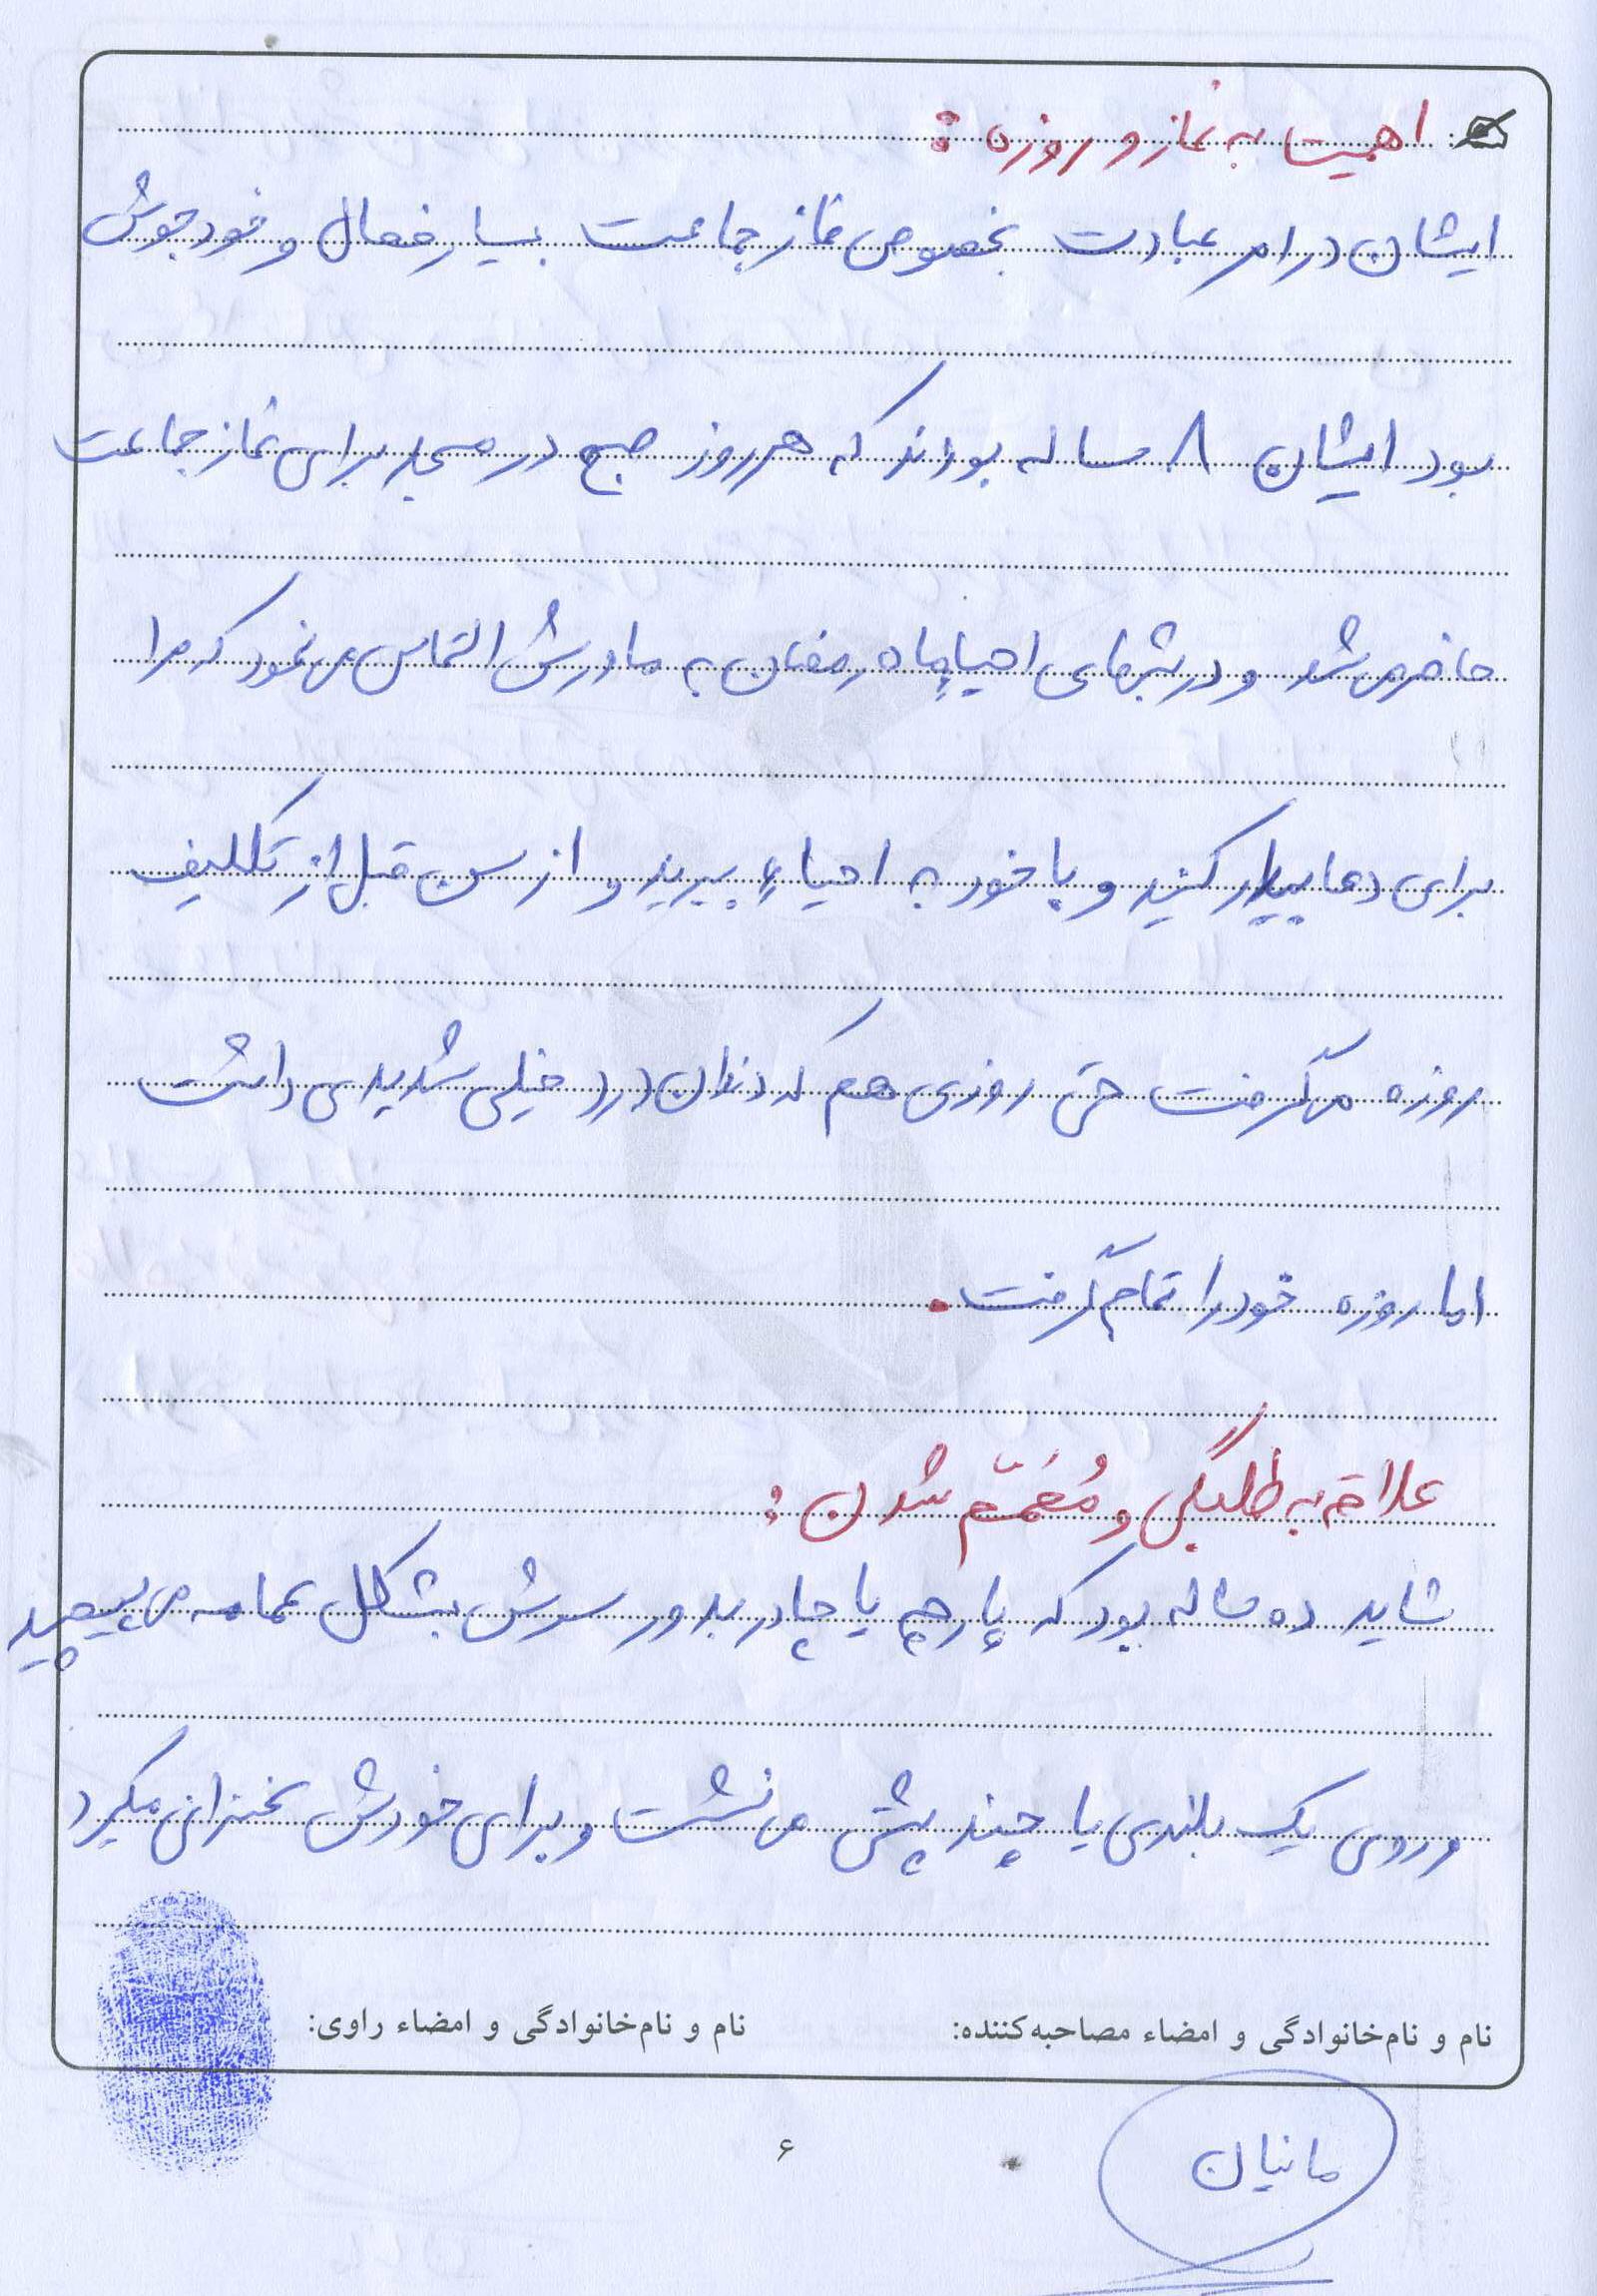 اهمیت به نماز و روزه :
ایشان در امر عبادت بخصوص نماز جماعت بسیار فعال و خودجوش
بود ایشان ۸ ساله بودند که هر روز صبح در مسجد برای نماز جماعت
حاضر می شد و در شبهای احیا ماه رمضان به مادرش التماس می نمود که مرا
برای دعا بیدار کنید و با خود به احیاء ببرید و از سن قبل از تکلیف
روزه می گرفت حتی روزی هم که دندان درد خیلی شدیدی داشت
اما روزه خود را تمام گرفت.
علاقه به طلبگی و مُعَمّم شدن :
شاید ده ساله بود که پارچه یا چادر بدور سرش بشکل عمامه می پیچید
و روی یک بلندی یا چند پشتی می نشست و برای خودش سخنرانی میکرد
نام و نام‌خانوادگی و امضاء مصاحبه‌کننده: نام و نام‌خانوادگی و امضاء راوی:
مانیان
۶